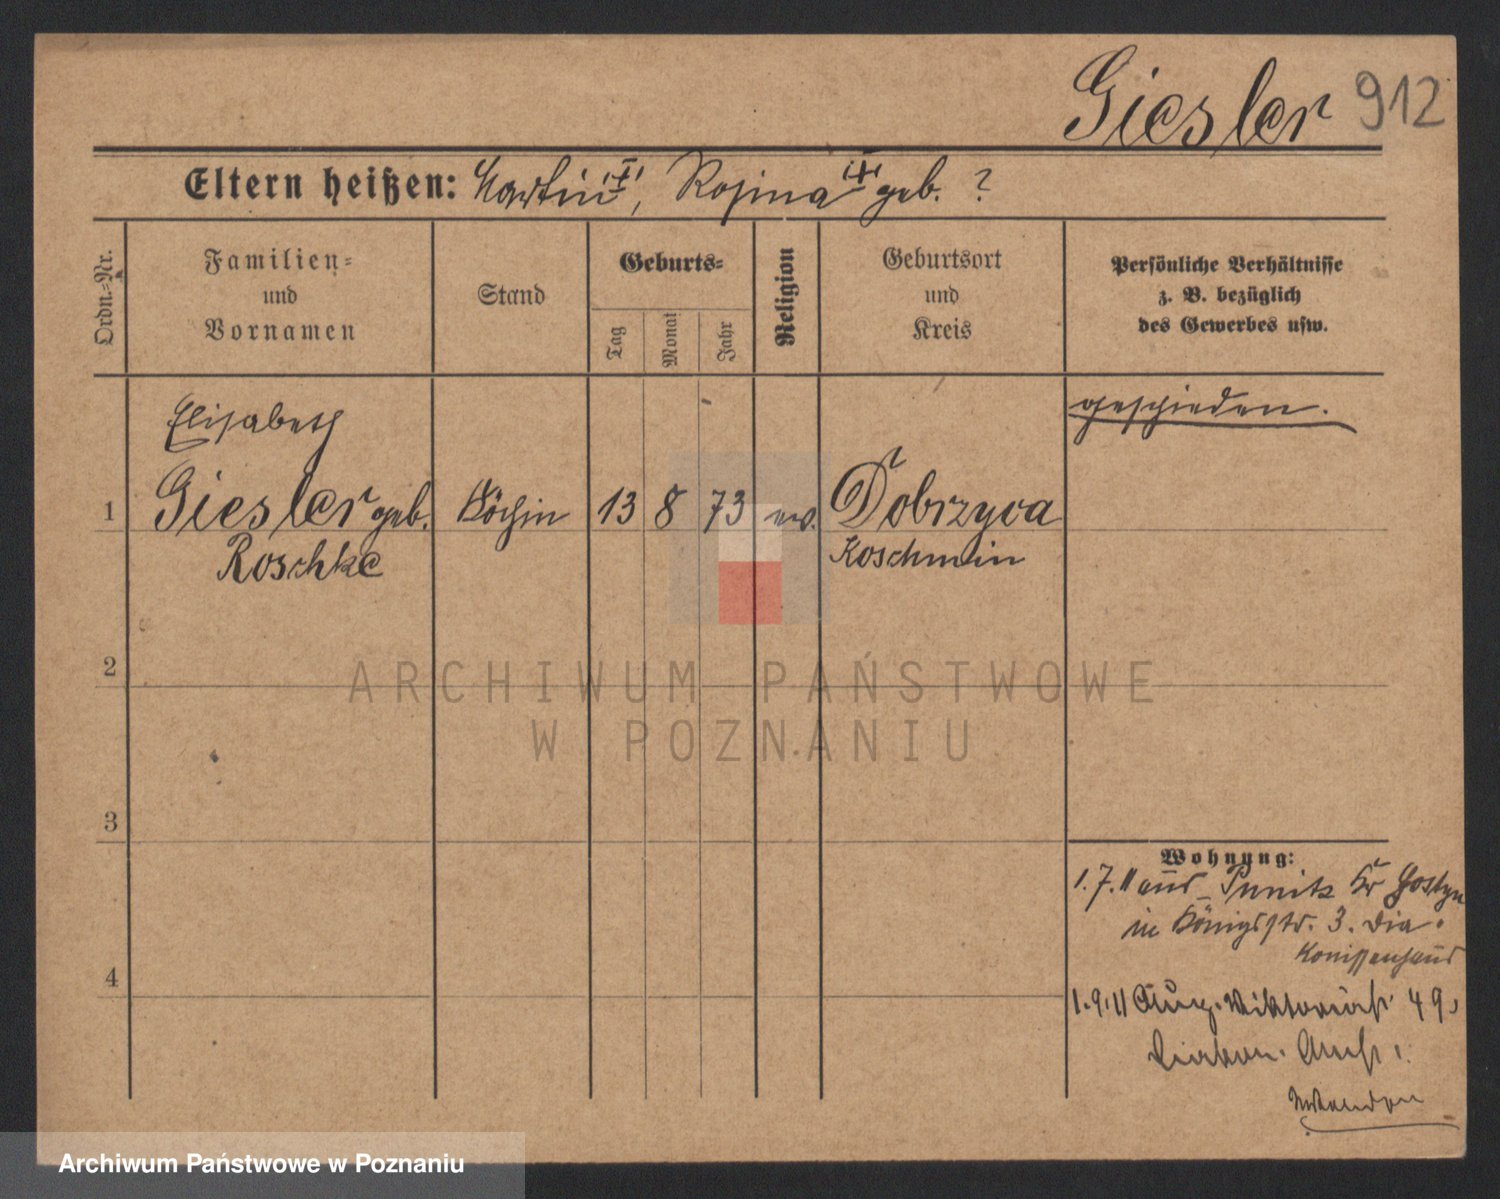 Giesler 912
Eltern heißen: Martin, Rosina geb. ?
Ordn.=Nr.
Familien=
und
Vornamen
Stand
Geburts=
Tag
Monat
Jahr
Religion
Geburtsort
und
Kreis
Persönliche Verhältnisse
z. B. bezüglich
des Gewerbes usw.
geschieden.
Elisabeth
1 Giesler geb. Köchin 13 8 73 ev. Dobrzyca
Roschke Koschmin
2
3
4
Wohnung:
1.7.11 aus Punitz Kr Gostyn
in Königstr. 3. Dia-
konissenhaus
1.9.11 Aug. Viktoriastr 49,
Diakon. Anst.
ARCHIWUM PAŃSTWOWE
W POZNANIU
Archiwum Państwowe w Poznaniu